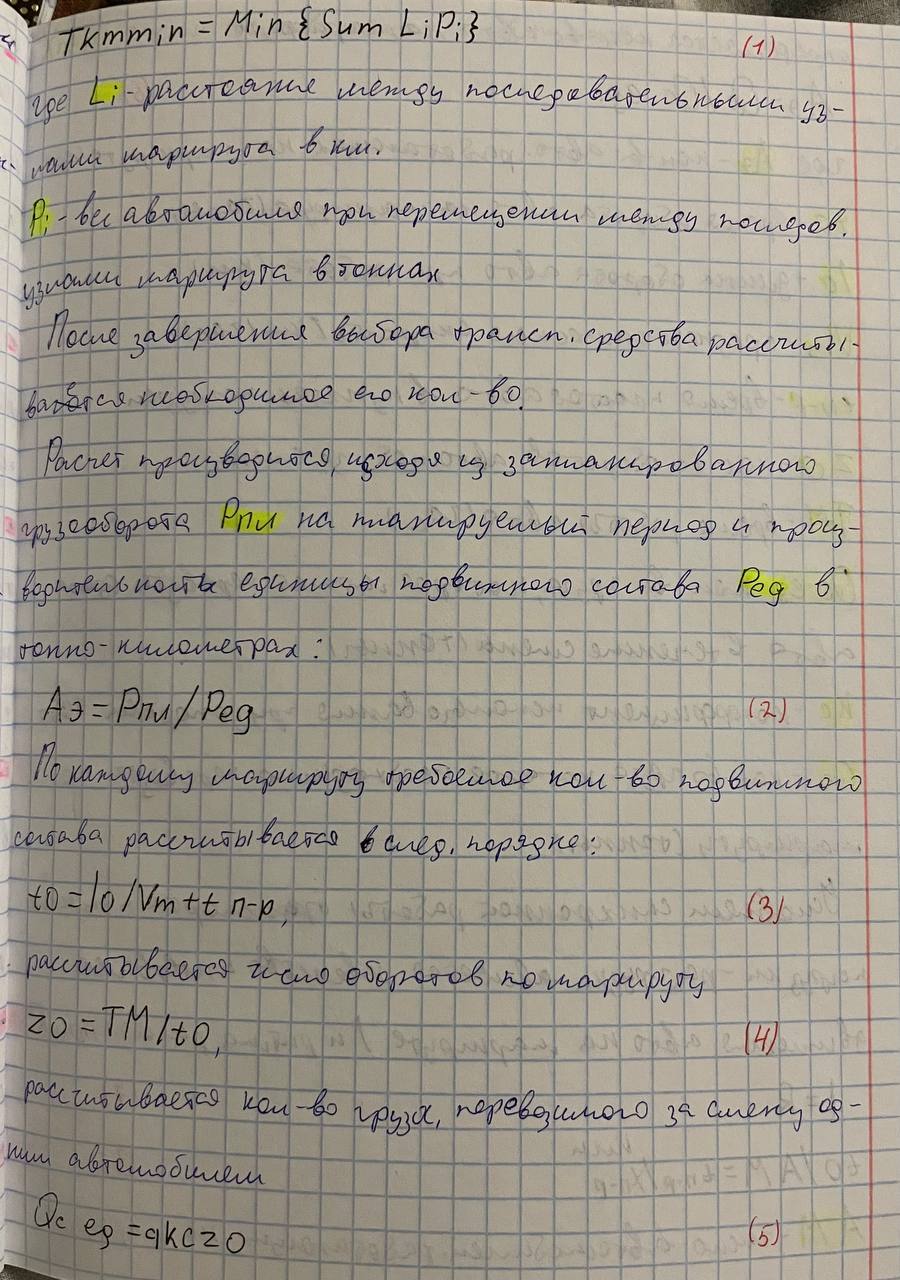 Tкmmin = Min {Sum LiPi} (1)
где Li - расстояние между последовательными уз-
лами маршрута в км.
Pi - вес автомобиля при перемещении между последов.
узлами маршрута в тоннах
После завершения выбора трансп. средства рассчиты-
вается необходимое его кол-во.
Расчет производится, исходя из запланированного
грузооборота Рпл на планируемый период и произ-
водительность единицы подвижного состава Ред в
тонно-километрах:
Аэ = Рпл / Ред (2)
По каждому маршруту требуемое кол-во подвижного
состава рассчитывается в след. порядке:
t0 = l0/Vm + t п-р, (3)
рассчитывается число оборотов по маршруту
z0 = TM/t0, (4)
рассчитывается кол-во груза, перевозимого за смену од-
ним автомобилем
Qc ед = qkcz0 (5)